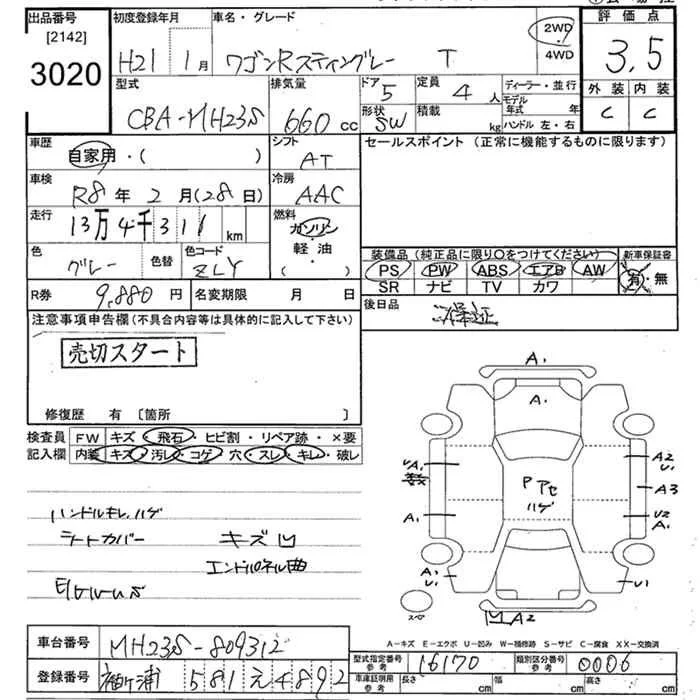 出品番号 初度登録年月 車名・グレード 評価点
[2142]
3020
H21 1月 ワゴンRスティングレー T 2WD・4WD 3.5
型式 排気量 ドア 定員 ディーラー・並行 外装 内装
CBA-MH23S 660cc 5 4人 モデル年式 年 C C
形状 SW 積載 kg ハンドル 左・右
車歴 シフト セールスポイント (正常に機能するものに限ります)
自家用・( ) AT
車検 冷房
R8年2月(28日) AAC
走行 燃料
13万4千311km ガソリン
軽・油
( )
色 色替 色コード 装備品 (純正品に限り〇をつけてください) 新車保証書
グレー ZLY PS PW ABS エアB AW 有・無
SR ナビ TV カワ
R券 9,880円 名変期限 月 日 後日品
保証
注意事項申告欄 (不具合内容等は具体的に記入して下さい)
売切スタート
修復歴 有 [箇所 ]
検査員 FW キズ・飛石・ヒビ割・リペア跡・×要
記入欄 内装 キズ・汚レ・コゲ・穴・スレ・キレ・破レ
A1
A.
A2
A3
U2
A1
A1
A1
U1
U1
A2
Pアセ
ハゲ
スペ
ハンドルキレ,ハゲ
ラートカバー キズ凹
エンドパネル曲
A-キズ E-エクボ U-凹み W-補修跡 S-サビ C-腐食 XX-交換済
車台番号 MH23S-809312
型式指定番号 参考 16170 類別区分番号 参考 0006
登録番号 袖ヶ浦 581 え 4892
車庫証明用 参考 長さ cm 幅 cm 高さ cm